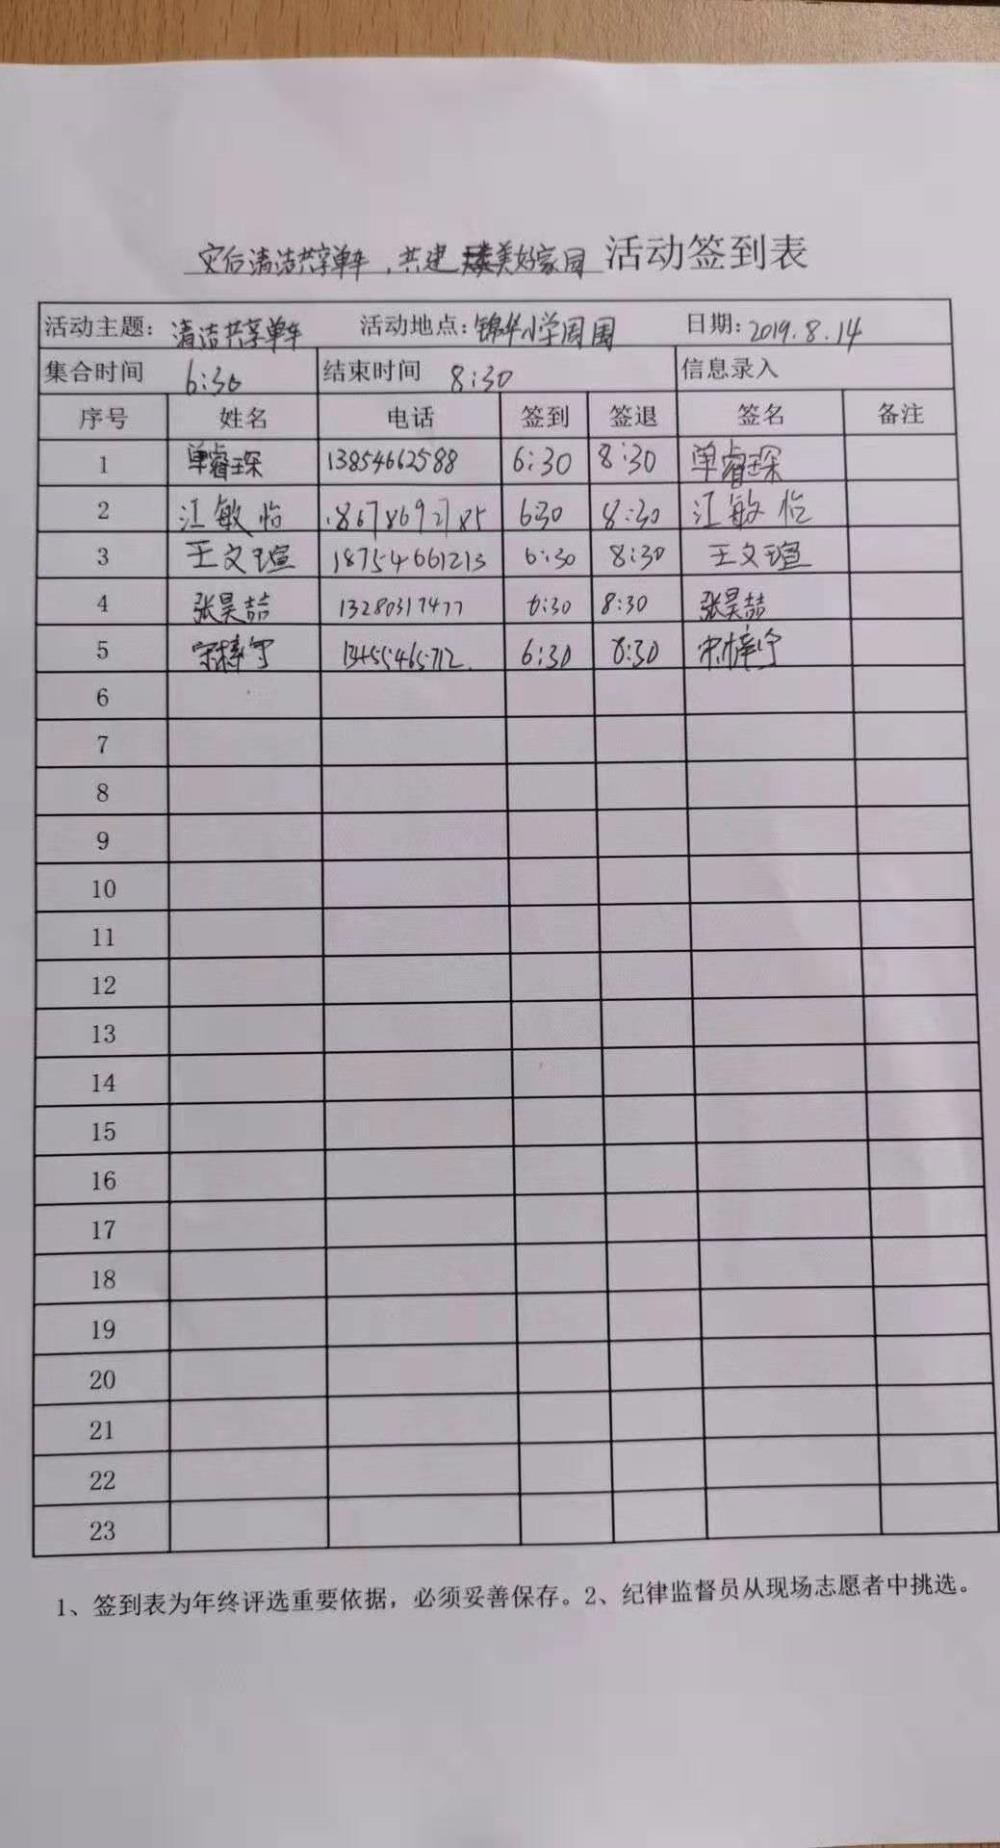 灾后清洁共享单车，共建美好家园 活动签到表
活动主题：清洁共享单车 活动地点：锦华小学周围 日期：2019.8.14
集合时间 6:30 结束时间 8:30 信息录入
序号 姓名 电话 签到 签退 签名 备注
1 单睿琛 13854662588 6:30 8:30 单睿琛
2 江敏怡 18678692785 630 8:30 江敏怡
3 王文瑄 18754661213 6:30 8:30 王文瑄
4 张昊喆 13280317477 6:30 8:30 张昊喆
5 宋梓宁 13455465712. 6:30 8:30 宋梓宁
6
7
8
9
10
11
12
13
14
15
16
17
18
19
20
21
22
23
1、签到表为年终评选重要依据，必须妥善保存。2、纪律监督员从现场志愿者中挑选。